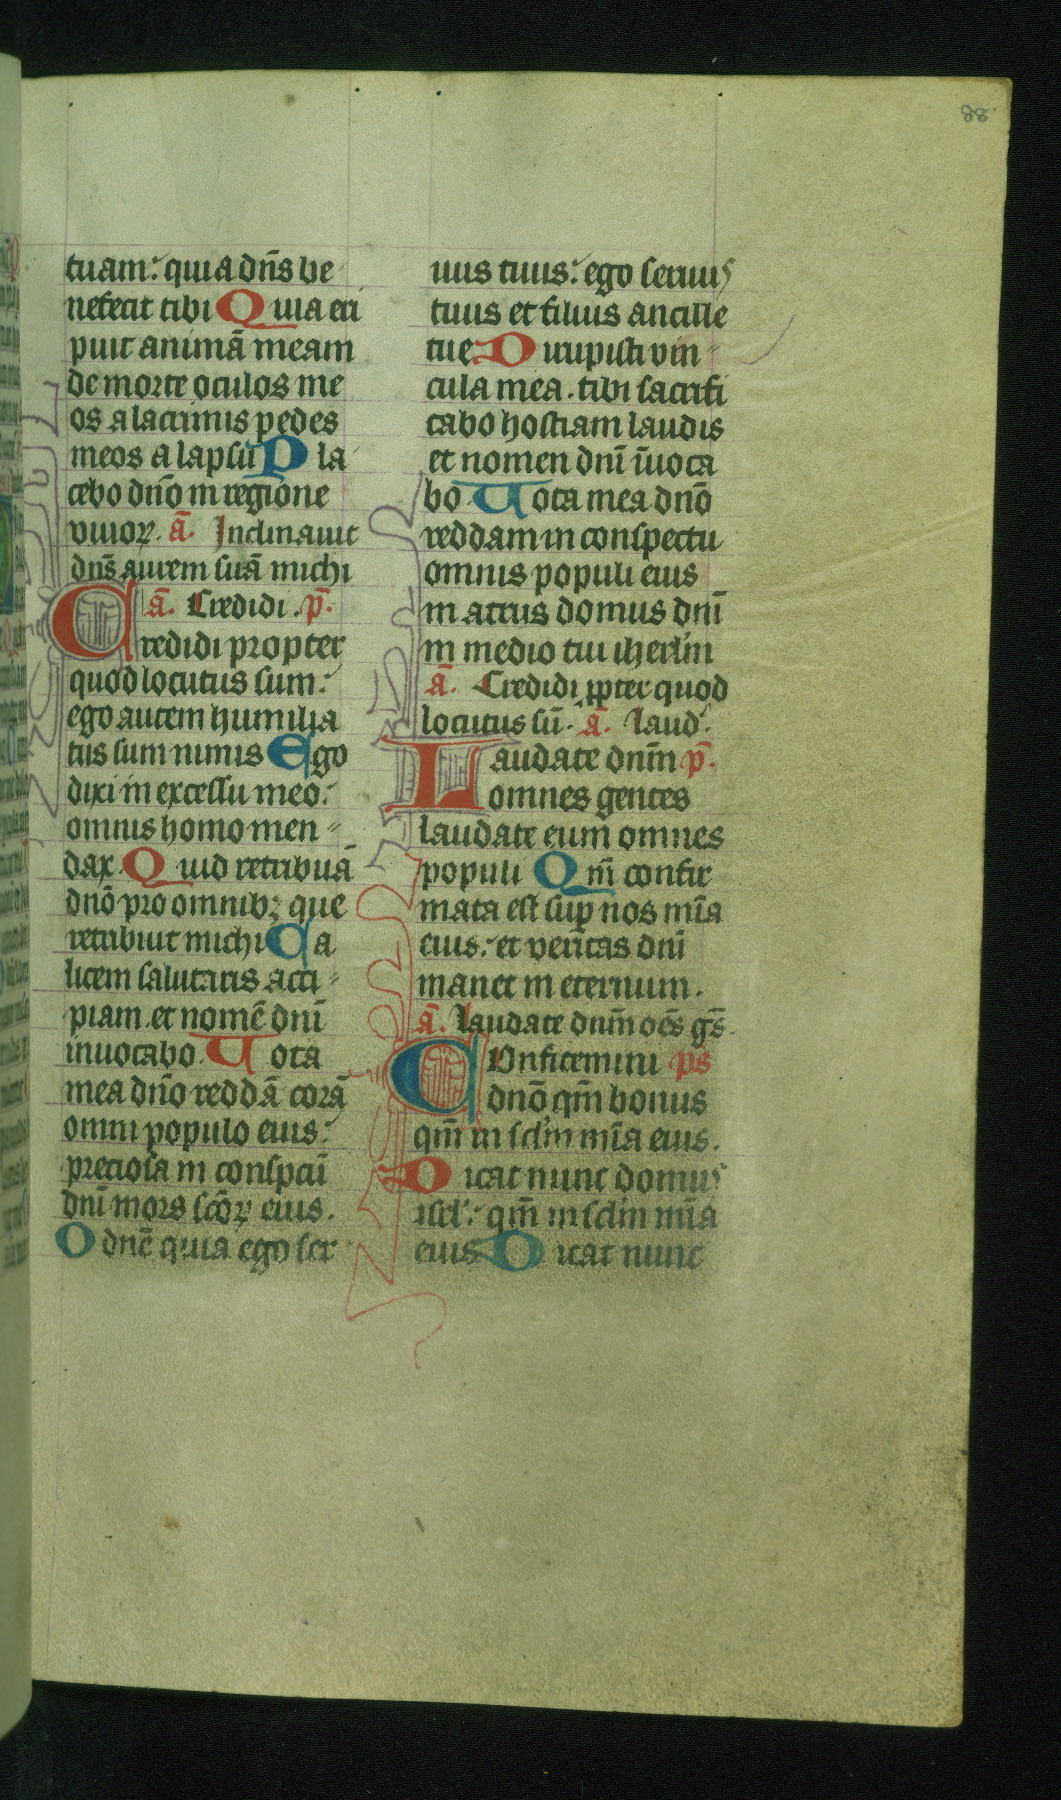 88
tuam: quia dn̄s be
nefecit tibi Quia eri
puit animā meam
de morte oculos me
os a lacrimis pedes
meos a lapsu Pla
cebo dn̄o in regione
viuoꝝ. ā. Inclinauit
dn̄s aurem suā michi
ā. Credidi. p̄.
Credidi propter
quod locutus sum:
ego autem humilia
tus sum nimis Ego
dixi in excessu meo:
omnis homo men-
dax. Quid retribuā
dn̄o pro omnibꝫ que
retribuit michi Ca
licem salutaris acci-
piam. et nomē dn̄i
inuocabo. Uota
mea dn̄o reddā corā
omni populo eius:
preciosa in conspcū
dn̄i mors scōꝝ eius.
O dn̄e quia ego ser
uus tuus: ego seruus
tuus et filius ancille
tue Dirupisti vin-
cula mea. tibi sacrifi
cabo hostiam laudis
et nomen dn̄i īuoca
bo. Uota mea dn̄o
reddam in conspectu
omnis populi eius
in atriis domus dn̄i
in medio tui iherl̄m
ā. Credidi ꝓpter quod
locutus sū. ā. Laud.
Laudate dn̄m p̄.
omnes gentes
laudate eum omnes
populi Qm̄ confir
mata est suꝑ nos mīa
eius: et veritas dn̄i
manet in eternum.
ā. Laudate dn̄m oēs gs̄.
COnfitemini ps
dn̄o qm̄ bonus
qm̄ in scl̄m mīa eius.
Dicat nunc domus
isrl̄: qm̄ in scl̄m mīa
eius Dicat nunc